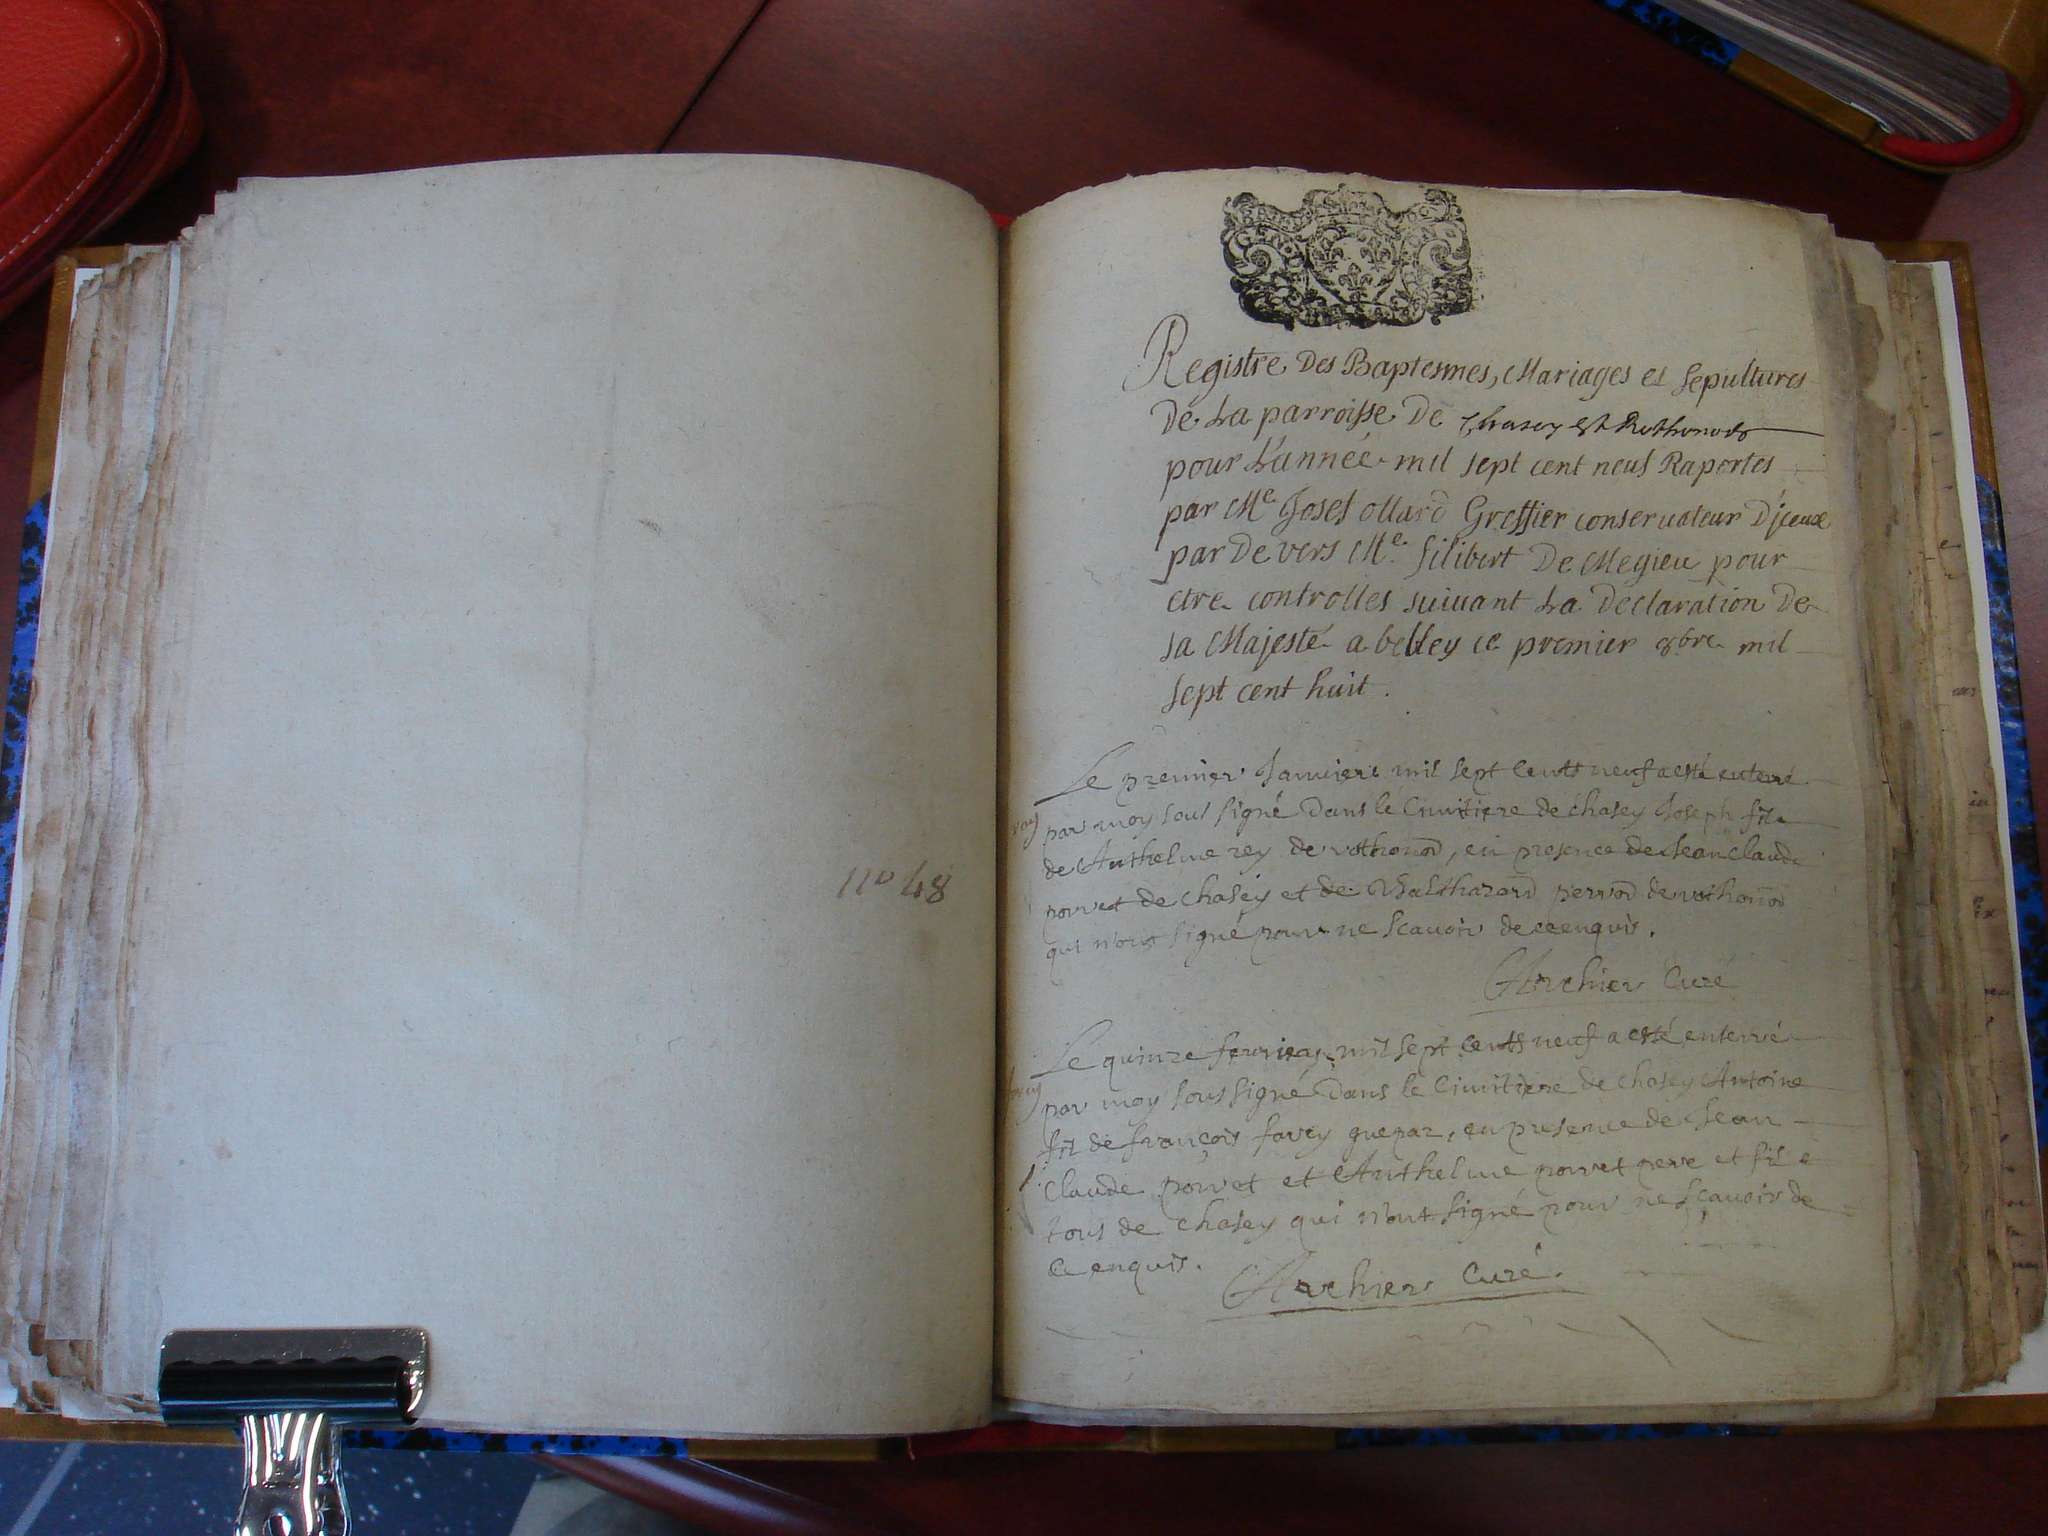 n° 48
Registre des Baptesmes, Mariages et sepultures
de La parroisse de Chasey et Rothonod
pour L'année mil sept cent neuf Raportes
par Me Josef ollard Greffier conservateur d'jceux
par devers Me filibert de Megieu pour
etre controlles suivant La declaration de
sa Majesté a belley ce premier 8bre mil
sept cent huit.
Le premier Janvier mil sept cents neuf a esté enterré
rey
par moy sous signé dans le Cimitiere de chasey Joseph fils
de Anthelme rey de rothonod, en presence de Jean claude
porret de chasey et de Balthazard perrod de rothonod
qui n'ont signé pour ne scavoir de ce enquis.
Archier Curé
Le quinze fevrier mil sept cents neuf a esté enterré
par moy sous signé dans le Cimitiere de chasey Antoine
fil de françois favey, en presence de Jean
claude porret et Anthelme porret pere et fils
tous de chasey qui n'ont signé pour ne scavoir de
ce enquis.
Archier Curé.